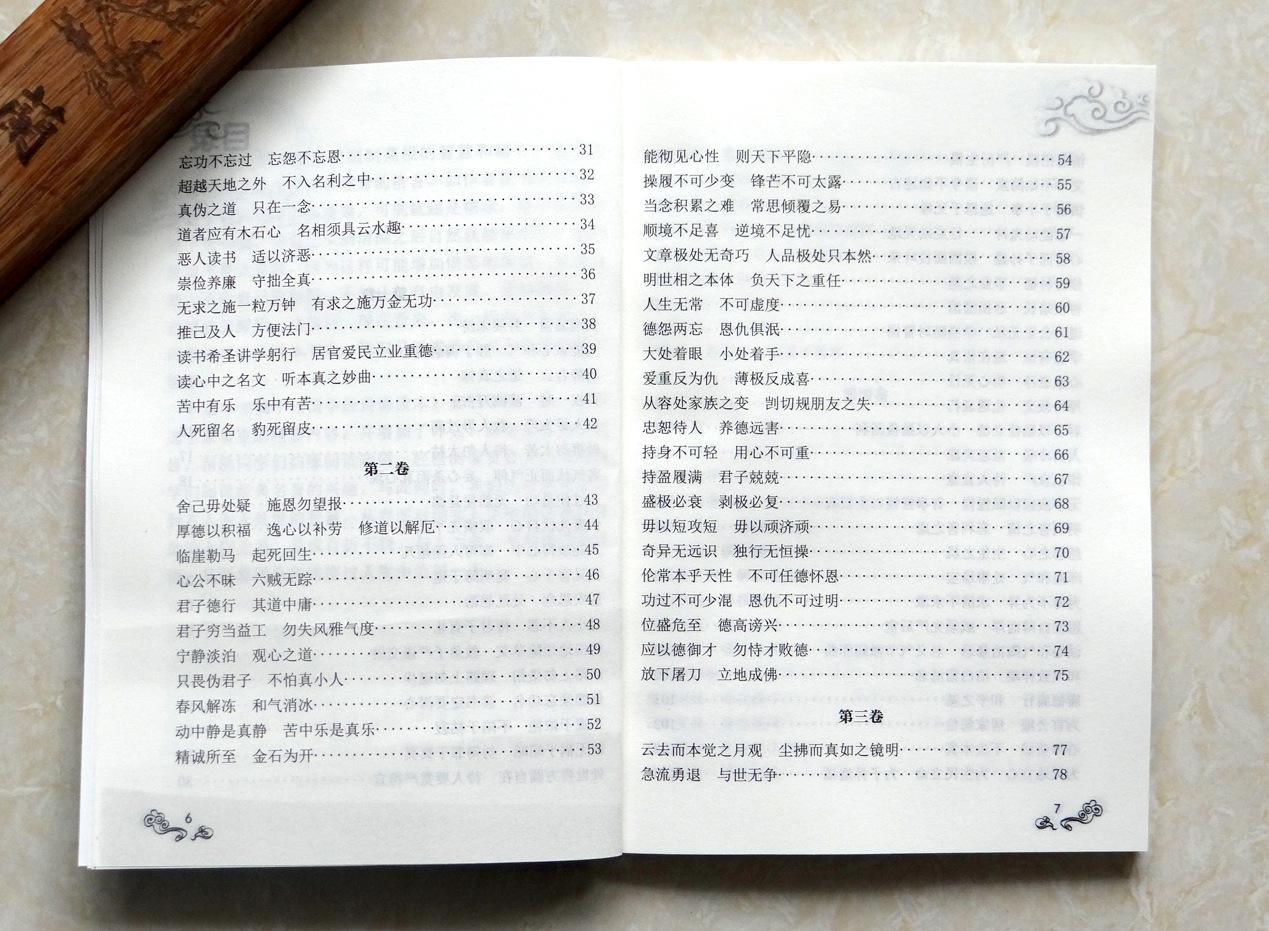 忘功不忘过　忘怨不忘恩……31
超越天地之外　不入名利之中……32
真伪之道　只在一念……33
道者应有木石心　名相须具云水趣……34
恶人读书　适以济恶……35
崇俭养廉　守拙全真……36
无求之施一粒万钟　有求之施万金无功……37
推己及人　方便法门……38
读书希圣讲学躬行　居官爱民立业重德……39
读心中之名文　听本真之妙曲……40
苦中有乐　乐中有苦……41
人死留名　豹死留皮……42
第二卷
舍己毋处疑　施恩勿望报……43
厚德以积福　逸心以补劳　修道以解厄……44
临崖勒马　起死回生……45
心公不昧　六贼无踪……46
君子德行　其道中庸……47
君子穷当益工　勿失风雅气度……48
宁静淡泊　观心之道……49
只畏伪君子　不怕真小人……50
春风解冻　和气消冰……51
动中静是真静　苦中乐是真乐……52
精诚所至　金石为开……53
6
能彻见心性　则天下平隐……54
操履不可少变　锋芒不可太露……55
当念积累之难　常思倾覆之易……56
顺境不足喜　逆境不足忧……57
文章极处无奇巧　人品极处只本然……58
明世相之本体　负天下之重任……59
人生无常　不可虚度……60
德怨两忘　恩仇俱泯……61
大处着眼　小处着手……62
爱重反为仇　薄极反成喜……63
从容处家族之变　剀切规朋友之失……64
忠恕待人　养德远害……65
持身不可轻　用心不可重……66
持盈履满　君子兢兢……67
盛极必衰　剥极必复……68
毋以短攻短　毋以顽济顽……69
奇异无远识　独行无恒操……70
伦常本乎天性　不可任德怀恩……71
功过不可少混　恩仇不可过明……72
位盛危至　德高谤兴……73
应以德御才　勿恃才败德……74
放下屠刀　立地成佛……75
第三卷
云去而本觉之月观　尘拂而真如之镜明……77
急流勇退　与世无争……78
7